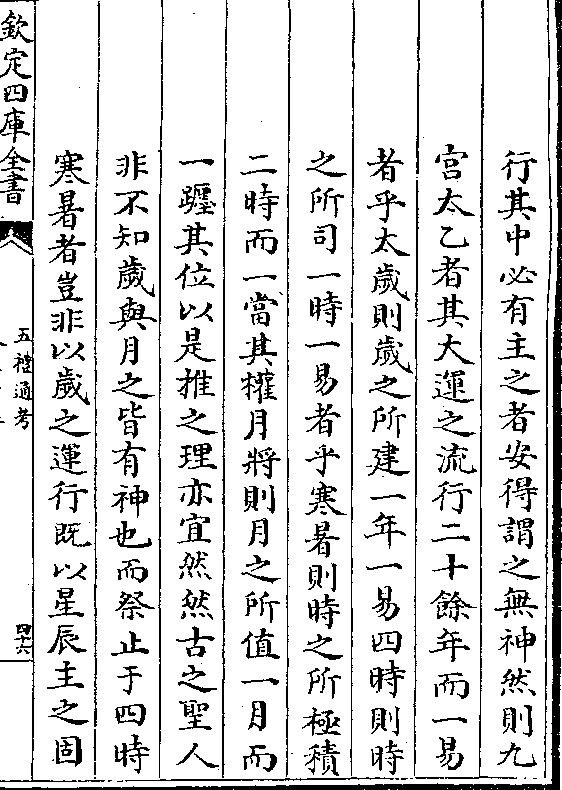 行其中必有主之者安得謂之無神然則九
宫太乙者其大運之流行二十餘年而一易
者乎太歲則歲之所建一年一易四時則時
之所司一時一易者乎寒暑則時之所極積
二時而一當其權月將則月之所值一月而
一躔其位以是推之理亦宜然然古之聖人
非不知歲與月之皆有神也而祭止于四時
寒暑者豈非以歲之運行既以星辰主之固
欽定四庫全書
五禮通考
四十六